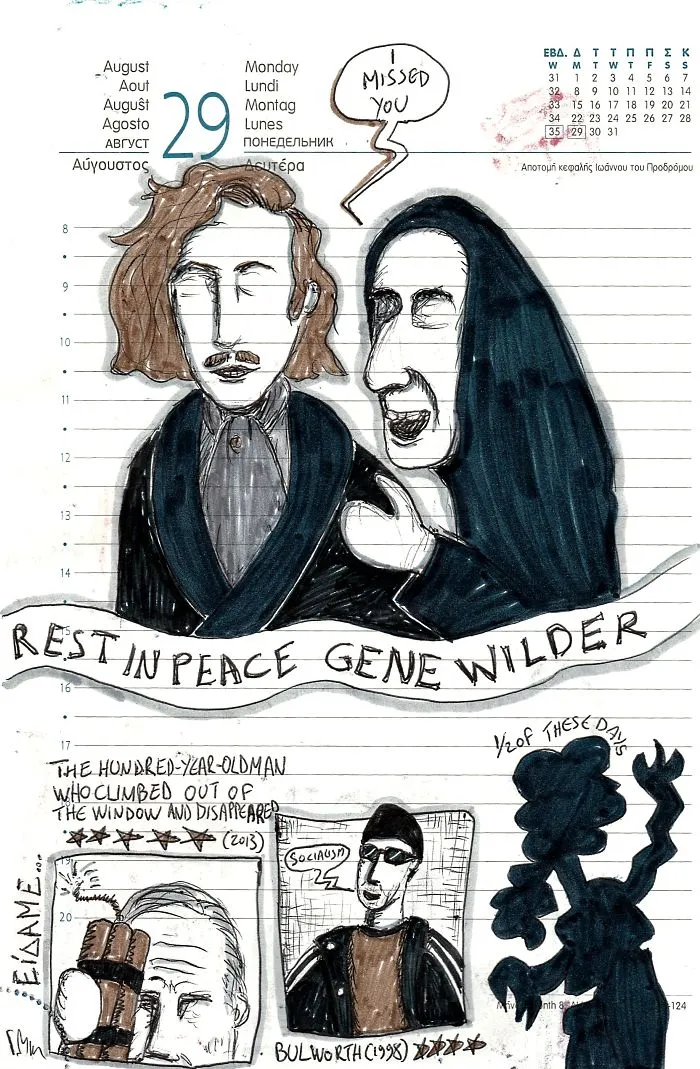 August
Aout
Augušt
Agosto
АВГУСТ
Αύγουστος
29
Monday
Lundi
Montag
Lunes
ПОНЕДЕЛЬНИК
Δευτέρα
I
MISSED
YOU
ΕΒΔ. Δ Τ Τ Π Π Σ Κ
W M T W T F S S
31 1 2 3 4 5 6 7
32 8 9 10 11 12 13 14
33 15 16 17 18 19 20 21
34 22 23 24 25 26 27 28
35 29 30 31
Αποτομή κεφαλής Ιωάννου του Προδρόμου
8
9
10
11
12
13
14
REST IN PEACE GENE WILDER
16
17
1/2 OF THESE DAYS
THE HUNDRED-YEAR-OLD MAN
WHO CLIMBED OUT OF
THE WINDOW AND DISAPPEARED
(2013)
19
20
ΕίΔΑΜΕ...
SOCIALISM
BULWORTH (1998)
-124